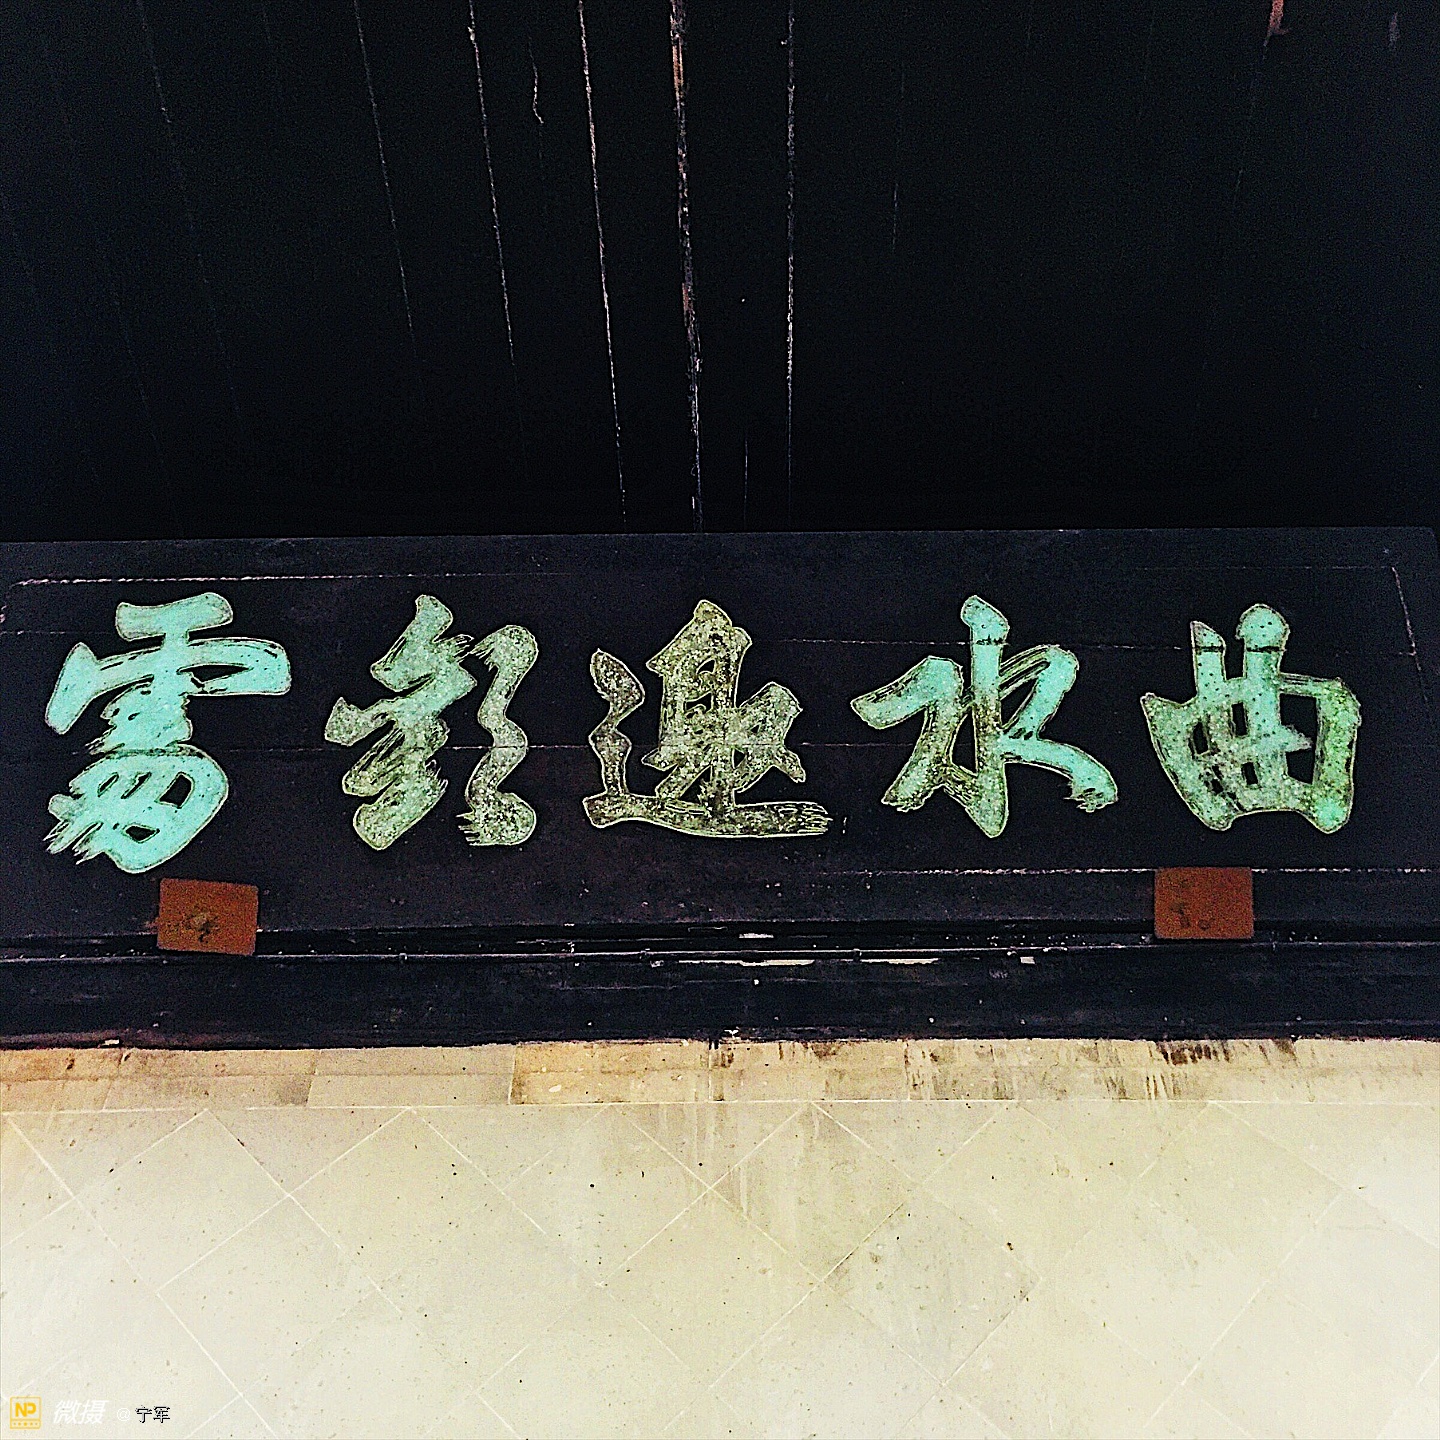 曲水邀歡處
NP 微摄 @宁军